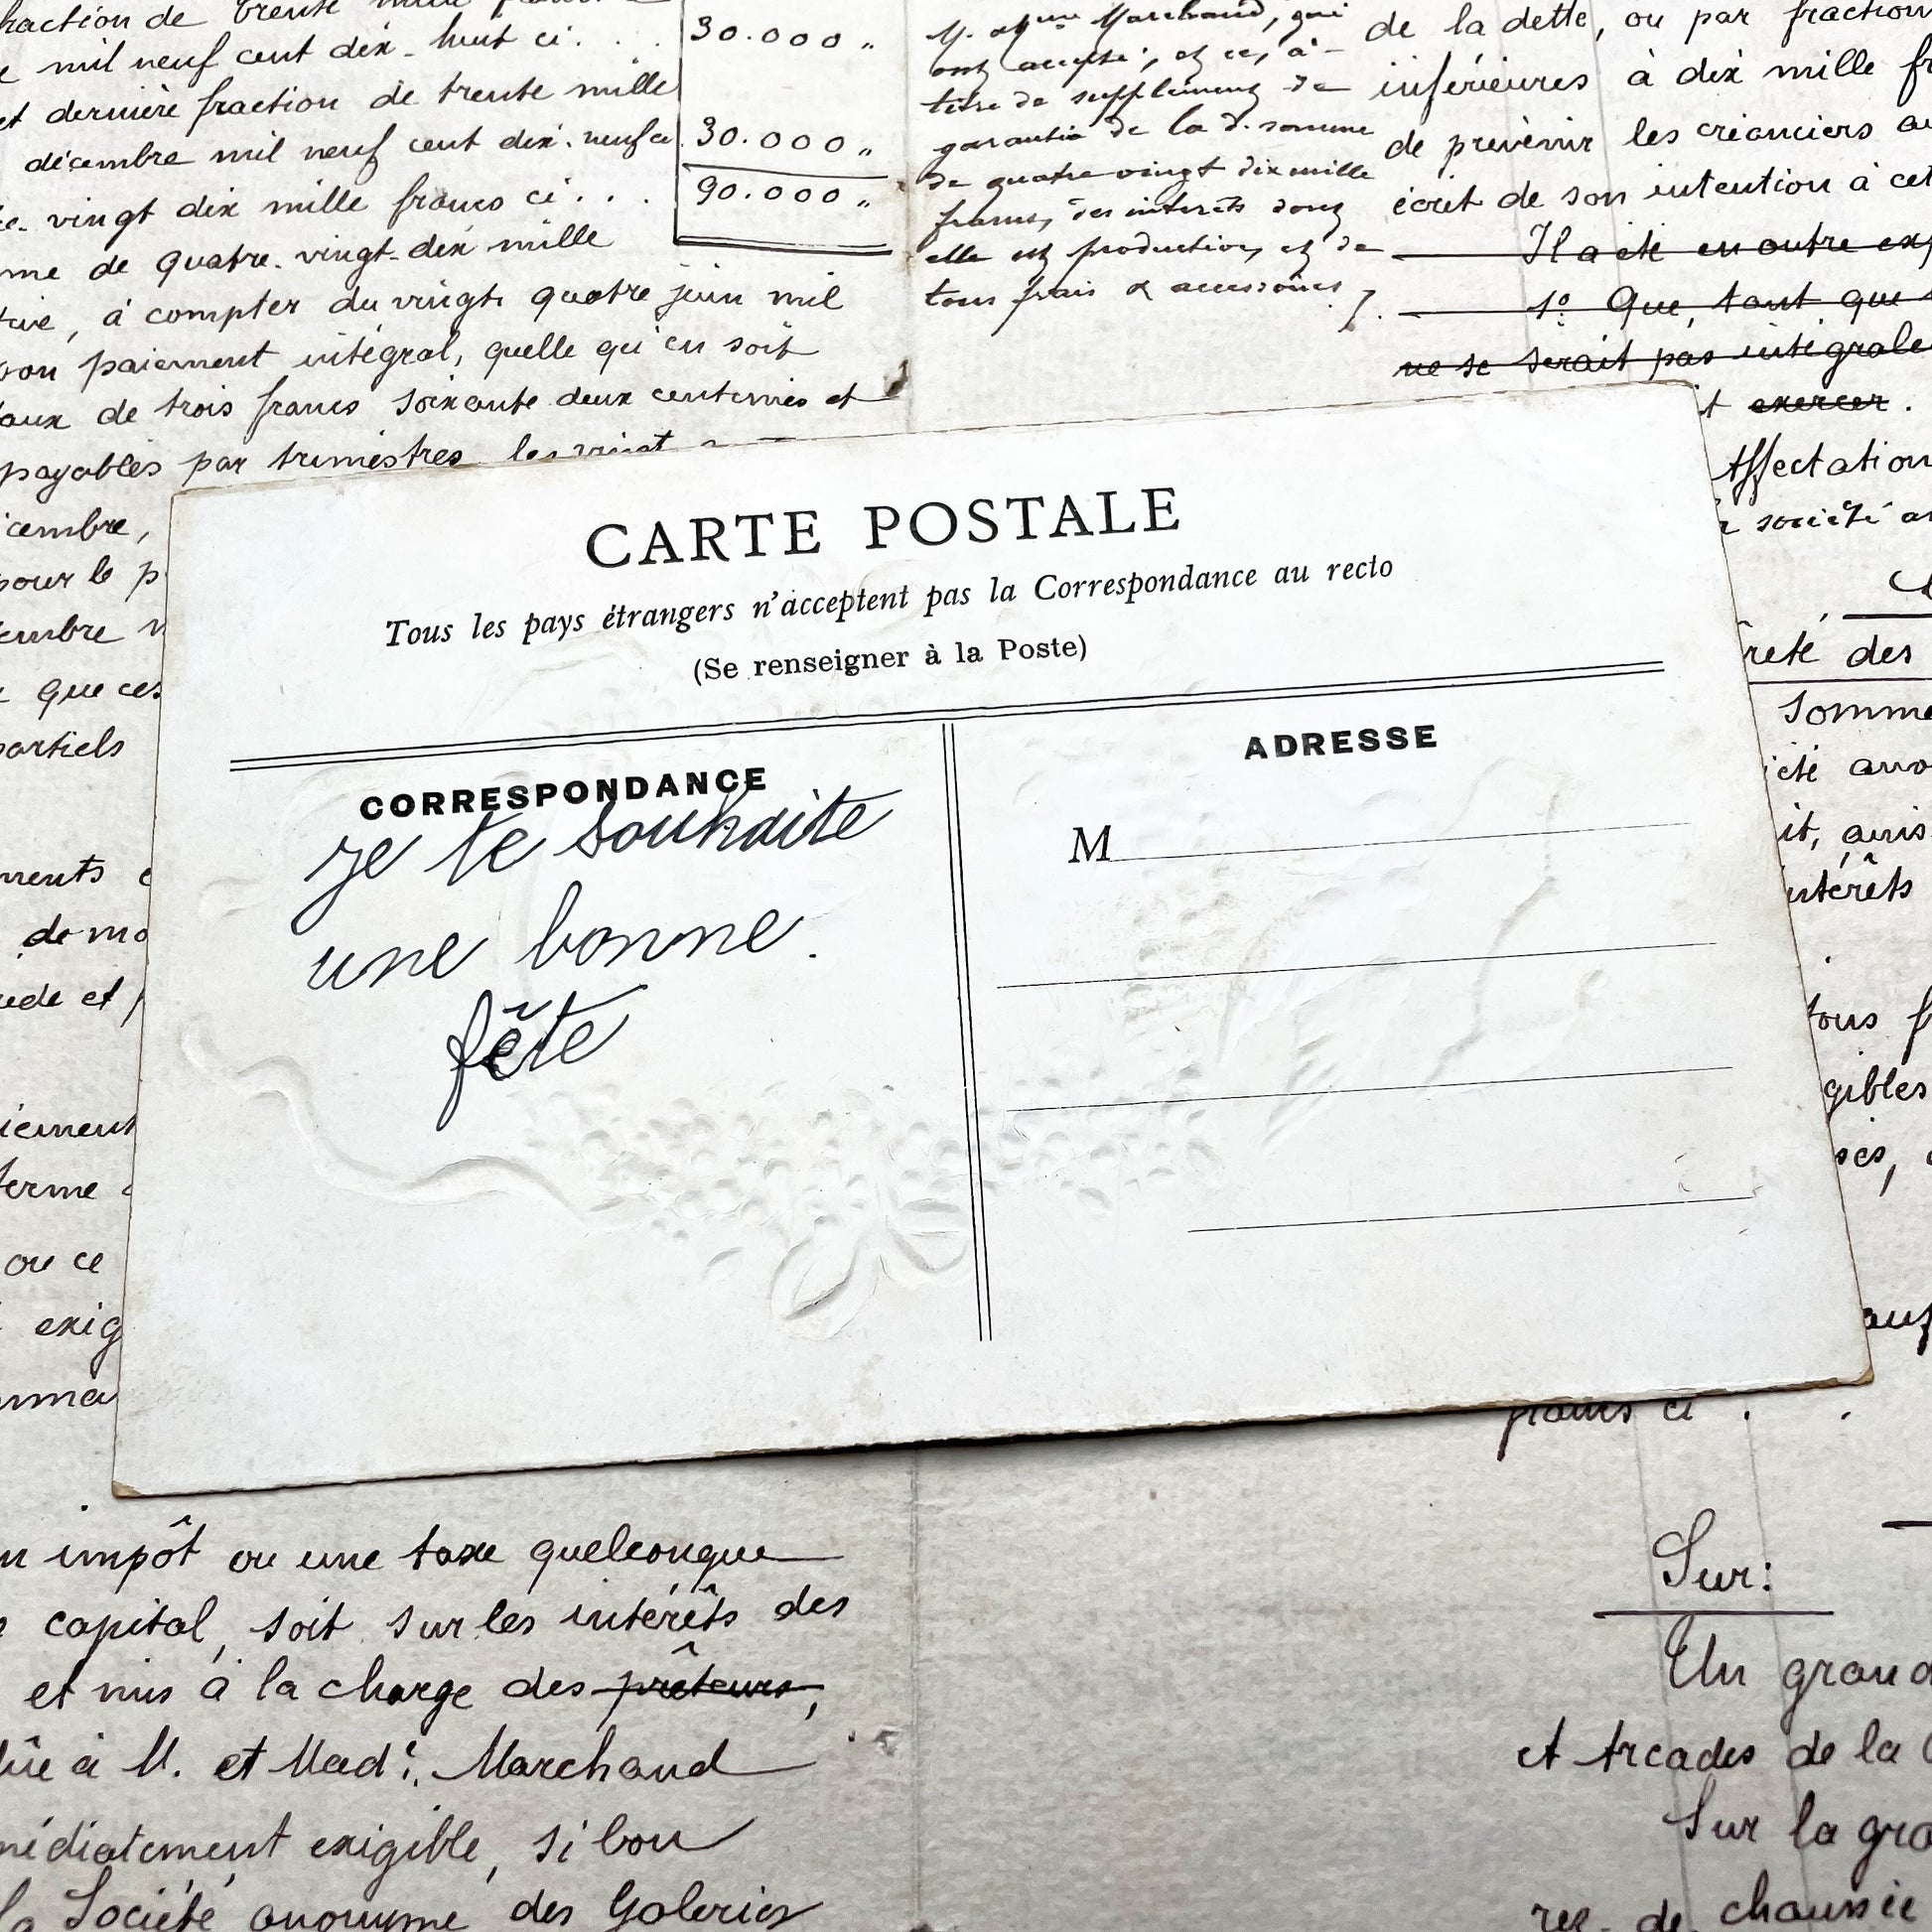 fraction de trente mille
mil neuf cent dix-huit ci . . .
30.000 "
et dernière fraction de trente mille
décembre mil neuf cent dix-neuf ci
30.000 "
vingt dix mille francs ci . . .
90.000 "
me de quatre-vingt-dix mille
à compter du vingt quatre juin mil
son paiement intégral, quelle qu'en soit
taux de trois francs soixante deux centimes et
payables par trimestres les vingt
cembre,
pour le p
embre
que ces
partiels
ments
de mo
ède et
iement
terme
ou ce
exig
mma
M. et Mme Marchand, qui
ont accepté, et ce, à
titre de supplément de
garantie de la d. somme
de quatre vingt dix mille
francs, des intérêts dont
elle est productive, et de
tous frais & accessoires
de la dette, ou par fraction
inférieures à dix mille fr
de prévenir les créanciers au
écrit de son intention à cet
Il a été en outre exp
1° Que, tant que
ne se serait pas intégrale
t exercer .
Affectation
société an
reté des
somme
iété ano
it, avis
intérêts
tous f
gibles
ses,
CARTE POSTALE
Tous les pays étrangers n'acceptent pas la Correspondance au recto
(Se renseigner à la Poste)
CORRESPONDANCE
je te souhaite
une bonne.
fête
ADRESSE
M
francs ci . .
n impôt ou une taxe quelconque
capital, soit sur les intérêts des
et mis à la charge des prêteurs,
due à M. et Made. Marchand
médiatement exigible, si bon
la Société anonyme des Galeries
Sur:
Un grand
et Arcades de la
Sur la gra
rez-de-chaussée